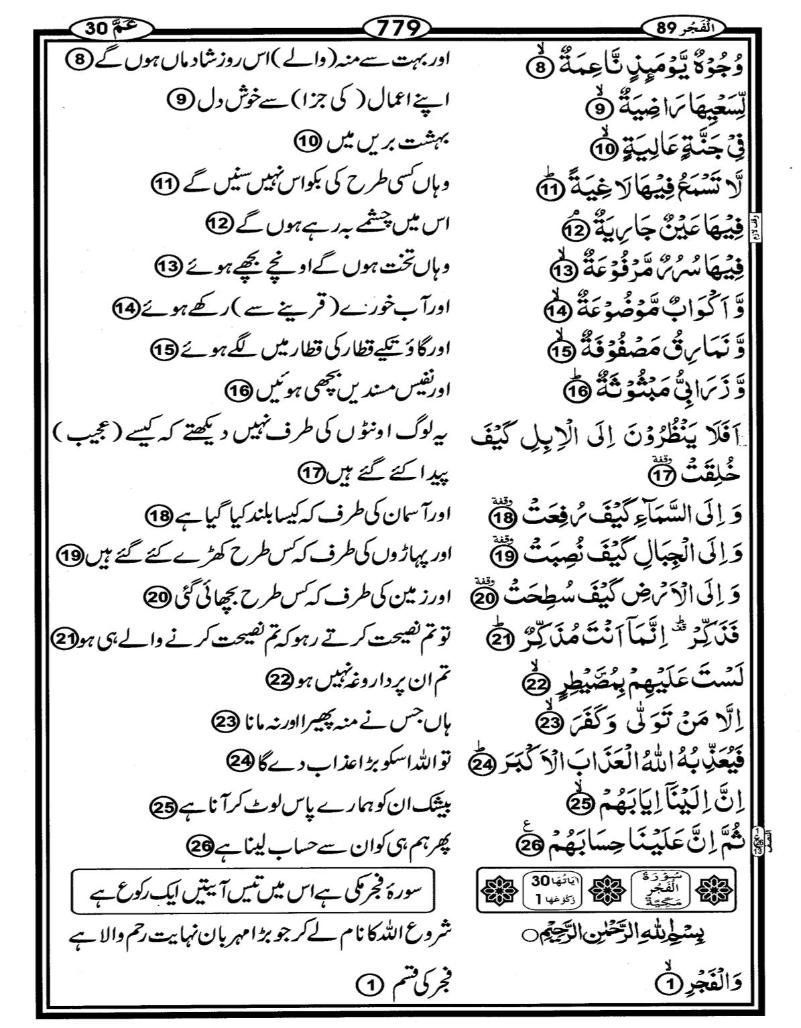 الْفَجْر 89
779
عَمَّ 30
وُجُوْهٌ يَّوْمَىِٕذٍ نَّاعِمَةٌ ۙ8 اور بہت سے منہ (والے) اس روز شادماں ہوں گے 8
لِّسَعْيِهَا رَاضِيَةٌ ۙ9 اپنے اعمال (کی جزا) سے خوش دل 9
فِىْ جَنَّةٍ عَالِيَةٍ ۙ10 بہشت بریں میں 10
لَّا تَسْمَعُ فِيْهَا لَاغِيَةً ؕ11 وہاں کسی طرح کی بکواس نہیں سنیں گے 11
فِيْهَا عَيْنٌ جَارِيَةٌ ۘ12 اس میں چشمے بہ رہے ہوں گے 12
وقف لازم
فِيْهَا سُرُرٌ مَّرْفُوْعَةٌ ۙ13 وہاں تخت ہوں گے اونچے بچھے ہوئے 13
وَّاَكْوَابٌ مَّوْضُوْعَةٌ ۙ14 اور آب خورے (قرینے سے) رکھے ہوئے 14
وَّنَمَارِقُ مَصْفُوْفَةٌ ۙ15 اور گاؤ تکیے قطار کی قطار میں لگے ہوئے 15
وَّزَرَابِىُّ مَبْثُوْثَةٌ ؕ16 اور نفیس مسندیں بچھی ہوئیں 16
اَفَلَا يَنْظُرُوْنَ اِلَى الْاِبِلِ كَيْفَ یہ لوگ اونٹوں کی طرف نہیں دیکھتے کہ کیسے (عجیب)
خُلِقَتْ وقفة 17 پیدا کئے گئے ہیں 17
وَاِلَى السَّمَآءِ كَيْفَ رُفِعَتْ وقفة 18 اور آسمان کی طرف کہ کیسا بلند کیا گیا ہے 18
وَاِلَى الْجِبَالِ كَيْفَ نُصِبَتْ وقفة 19 اور پہاڑوں کی طرف کہ کس طرح کھڑے کئے گئے ہیں 19
وَاِلَى الْاَرْضِ كَيْفَ سُطِحَتْ وقفة 20 اور زمین کی طرف کہ کس طرح بچھائی گئی 20
فَذَكِّرْ قف اِنَّمَاۤ اَنْتَ مُذَكِّرٌ ؕ21 تو تم نصیحت کرتے رہو کہ تم نصیحت کرنے والے ہی ہو 21
لَسْتَ عَلَيْهِمْ بِمُصَۜيْطِرٍ ۙ22 تم ان پر داروغہ نہیں ہو 22
اِلَّا مَنْ تَوَلّٰى وَكَفَرَ ۙ23 ہاں جس نے منہ پھیرا اور نہ مانا 23
فَيُعَذِّبُهُ اللّٰهُ الْعَذَابَ الْاَكْبَرَ ؕ24 تو اللہ اسکو بڑا عذاب دے گا 24
اِنَّ اِلَيْنَاۤ اِيَابَهُمْ ۙ25 بیشک ان کو ہمارے پاس لوٹ کر آنا ہے 25
ثُمَّ اِنَّ عَلَيْنَا حِسَابَهُمْ ع 26 پھر ہم ہی کو ان سے حساب لینا ہے 26
سُوْرَةُ الْفَجْرِ مَكِّيَّةٌ اٰيَاتُهَا 30 رُكُوْعُهَا 1 سورۂ فجر مکی ہے اس میں تیس آیتیں ایک رکوع ہے
بِسْمِ اللّٰهِ الرَّحْمٰنِ الرَّحِيْمِ شروع اللہ کا نام لے کر جو بڑا مہربان نہایت رحم والا ہے
وَالْفَجْرِ ۙ1 فجر کی قسم 1